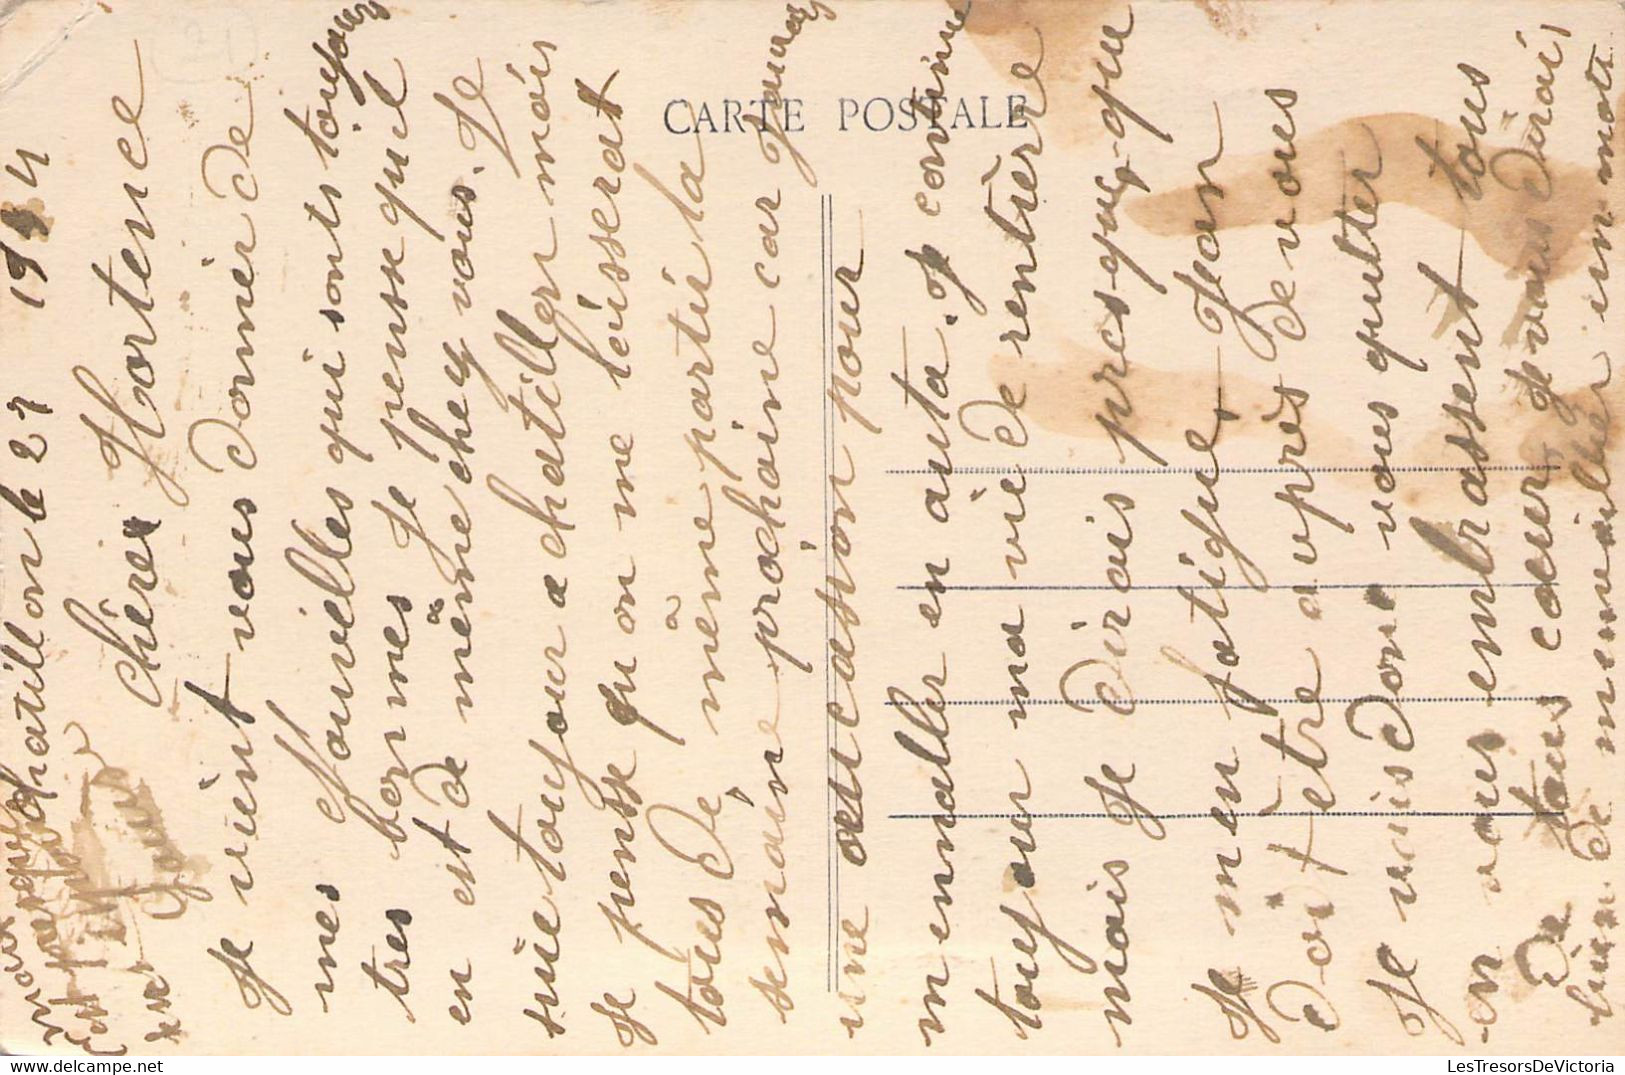 CARTE POSTALE
Chatillon le 27 1914
chères Hortence
Je vient vous donnér de
mes Nouvelles qui sont toujours
tres bonnes Je pensse quil
en est de même chez vous. Je
suie toujour a chatillon mais
Je pensse qu on me léisserat
tous de même partir la
semaine prochaine car Jaurai
une aucasion pour
m ennaller en auto. Je continu
toujour ma vie de rentière
mais Je dirais presque que
Je m en fatigue, Jean
doit être après de vous
Je vais donc vous quitter
en vous embrassent tous
De tous cœur Je vous dirais
bien de